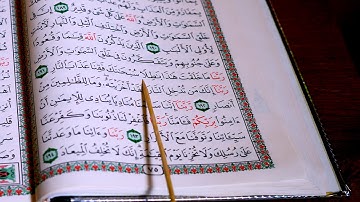 عَلَىٰ كُلِّ شَىْءٍ قَدِيرٌ ١٨٩
وَٱلْأَرْضِ وَٱخْتِلَٰفِ ٱلَّيْلِ وَٱلنَّهَارِ
لِّأُو۟لِى ٱلْأَلْبَٰبِ ١٩٠ ٱلَّذِينَ يَذْكُرُونَ ٱللَّهَ قِيَٰمًا وَقُعُودًا
وَعَلَىٰ جُنُوبِهِمْ وَيَتَفَكَّرُونَ فِى خَلْقِ ٱلسَّمَٰوَٰتِ وَٱلْأَرْضِ
رَبَّنَا مَا خَلَقْتَ هَٰذَا بَٰطِلًا سُبْحَٰنَكَ فَقِنَا عَذَابَ ٱلنَّارِ ١٩١
رَبَّنَآ إِنَّكَ مَن تُدْخِلِ ٱلنَّارَ فَقَدْ أَخْزَيْتَهُۥ وَمَا لِلظَّٰلِمِينَ مِنْ
أَنصَارٍ ١٩٢ رَّبَّنَآ إِنَّنَا سَمِعْنَا مُنَادِيًا يُنَادِى لِلْإِيمَٰنِ أَنْ
ءَامِنُوا۟ بِرَبِّكُمْ فَـَٔامَنَّا رَبَّنَا فَٱغْفِرْ لَنَا ذُنُوبَنَا وَكَفِّرْ عَنَّا
سَيِّـَٔاتِنَا وَتَوَفَّنَا مَعَ ٱلْأَبْرَارِ ١٩٣ رَبَّنَا وَءَاتِنَا مَا وَعَدتَّنَا
عَلَىٰ رُسُلِكَ وَلَا تُخْزِنَا يَوْمَ ٱلْقِيَٰمَةِ إِنَّكَ لَا تُخْلِفُ ٱلْمِيعَادَ ١٩٤
٧٥